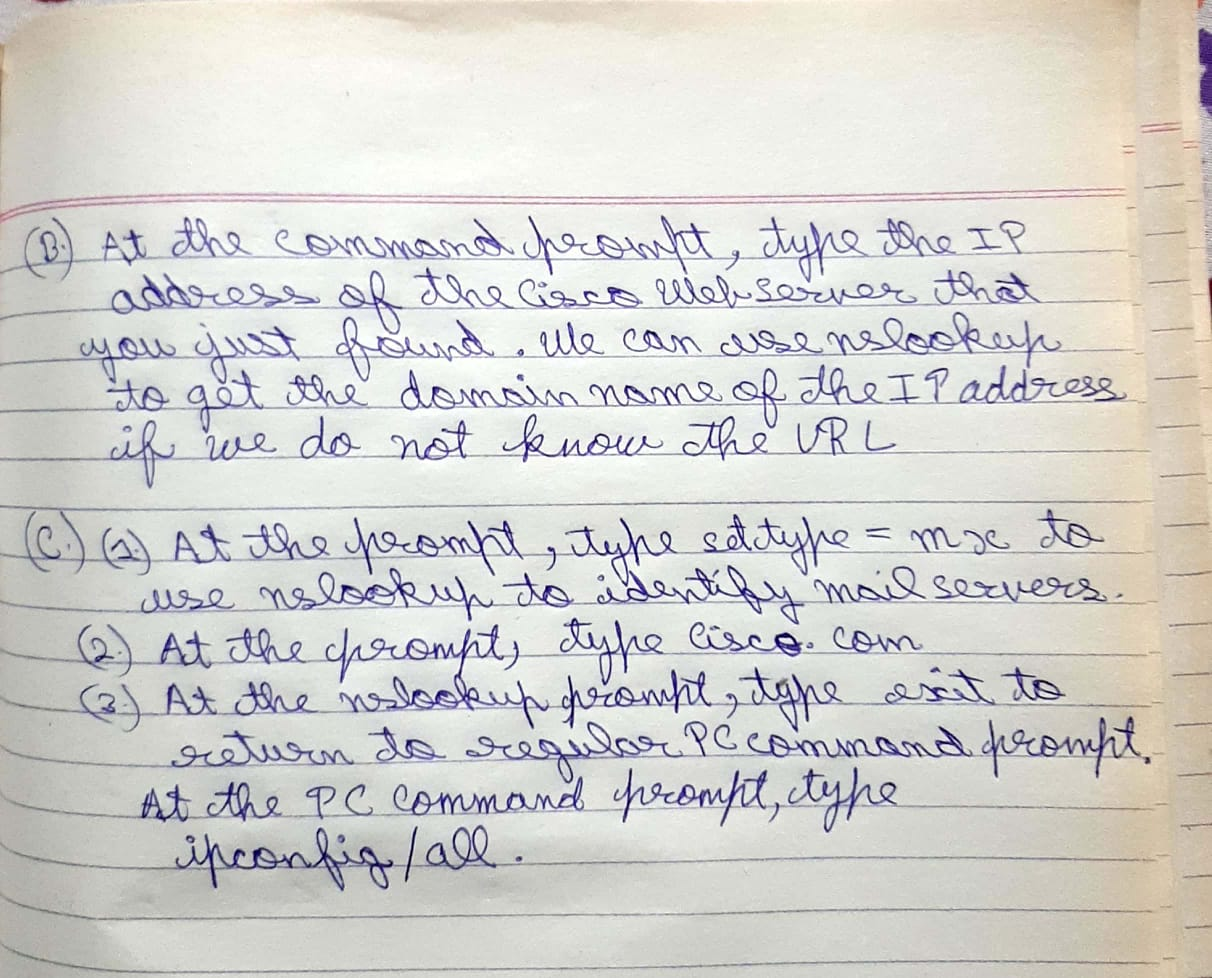 (B.) At the command prompt, type the IP
address of the Cisco Web server that
you just found. We can use nslookup
to get the domain name of the IP address
if we do not know the URL
(C.) (1.) At the prompt, type set type = mx to
use nslookup to identify mail servers.
(2.) At the prompt, type cisco.com
(3.) At the nslookup prompt, type exit to
return to regular PC command prompt.
At the PC command prompt, type
ipconfig /all.